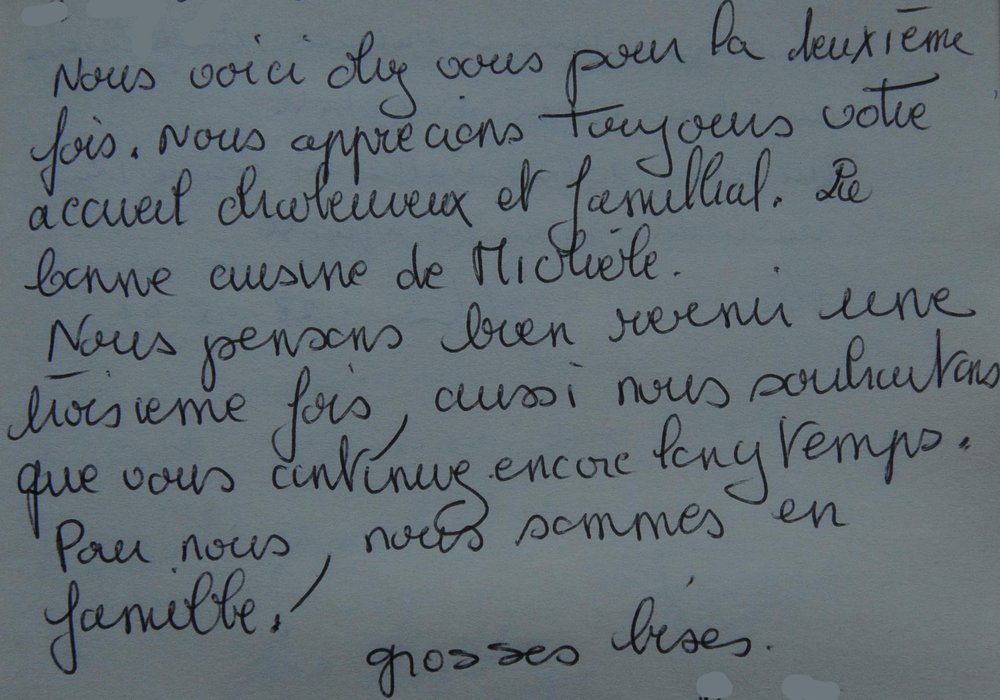 Nous voici chez vous pour la deuxième
fois. Nous apprécions toujours votre
accueil chaleureux et famillial. La
bonne cuisine de Michèle.
Nous pensons bien revenir une
troisième fois, aussi nous souhaitons
que vous continuez encore longtemps.
Pour nous, nous sommes en
famille.
grosses bises.